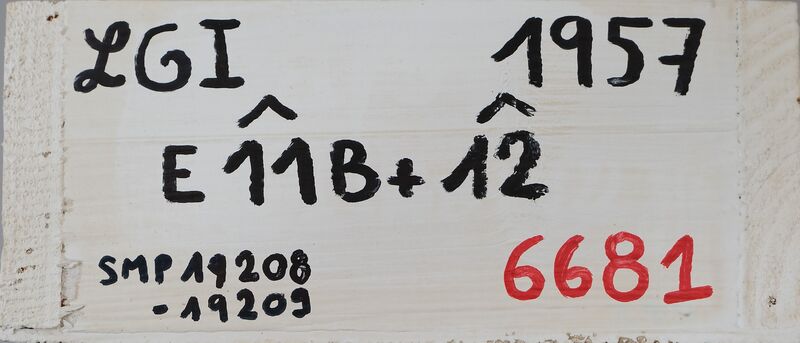 LGI 1957
E 11̂B+12̂
SMP 19208 6681
-19209